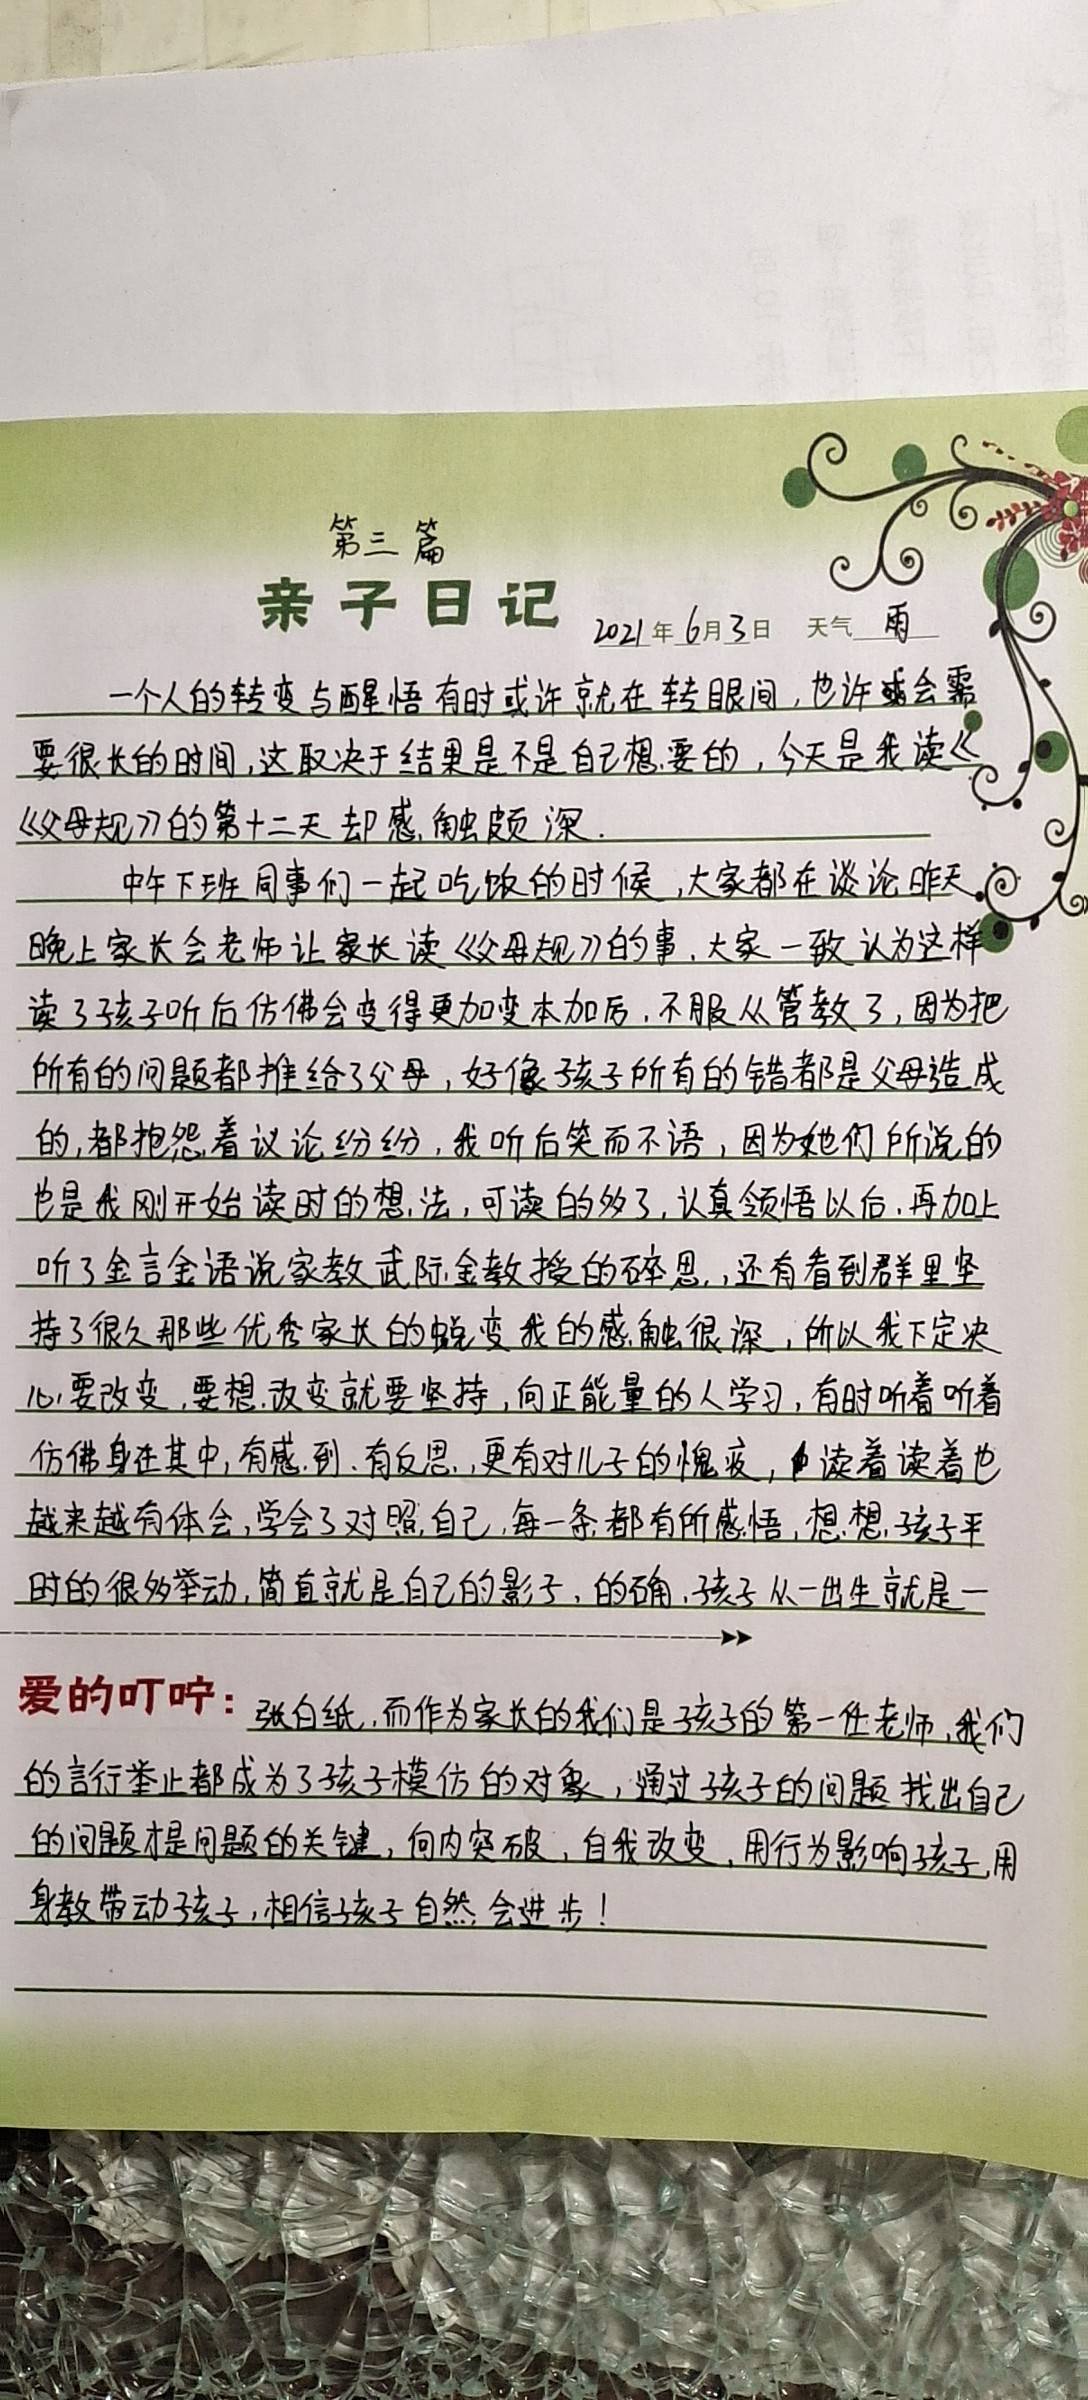 第三篇
亲子日记
2021年6月3日 天气 雨
一个人的转变与醒悟有时或许就在转眼间,也许会需
要很长的时间,这取决于结果是不是自己想要的,今天是我读《
《父母规》的第十二天却感触颇深.
中午下班同事们一起吃饭的时候,大家都在谈论昨天
晚上家长会老师让家长读《父母规》的事,大家一致认为这样
读了孩子听后仿佛会变得更加变本加厉,不服从管教了,因为把
所有的问题都推给了父母,好像孩子所有的错都是父母造成
的,都抱怨着议论纷纷,我听后笑而不语,因为她们所说的
也是我刚开始读时的想法,可读的多了,认真领悟以后,再加上
听了金言金语说家教武际金教授的碎思,还有看到群里坚
持了很久那些优秀家长的蜕变我的感触很深,所以我下定决
心要改变,要想改变就要坚持,向正能量的人学习,有时听着听着
仿佛身在其中,有感到.有反思,更有对儿子的愧疚,读着读着也
越来越有体会,学会了对照自己,每一条都有所感悟,想想孩子平
时的很多举动,简直就是自己的影子,的确,孩子从一出生就是一
爱的叮咛:张白纸,而作为家长的我们是孩子的第一任老师,我们
的言行举止都成为了孩子模仿的对象,通过孩子的问题找出自己
的问题才是问题的关键,向内突破,自我改变,用行为影响孩子,用
身教带动孩子,相信孩子自然会进步!